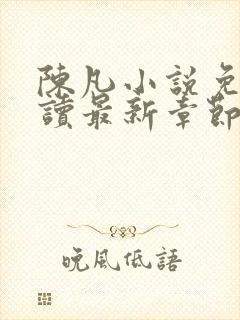 陳凡小說免
讀最新章節
晚風低語